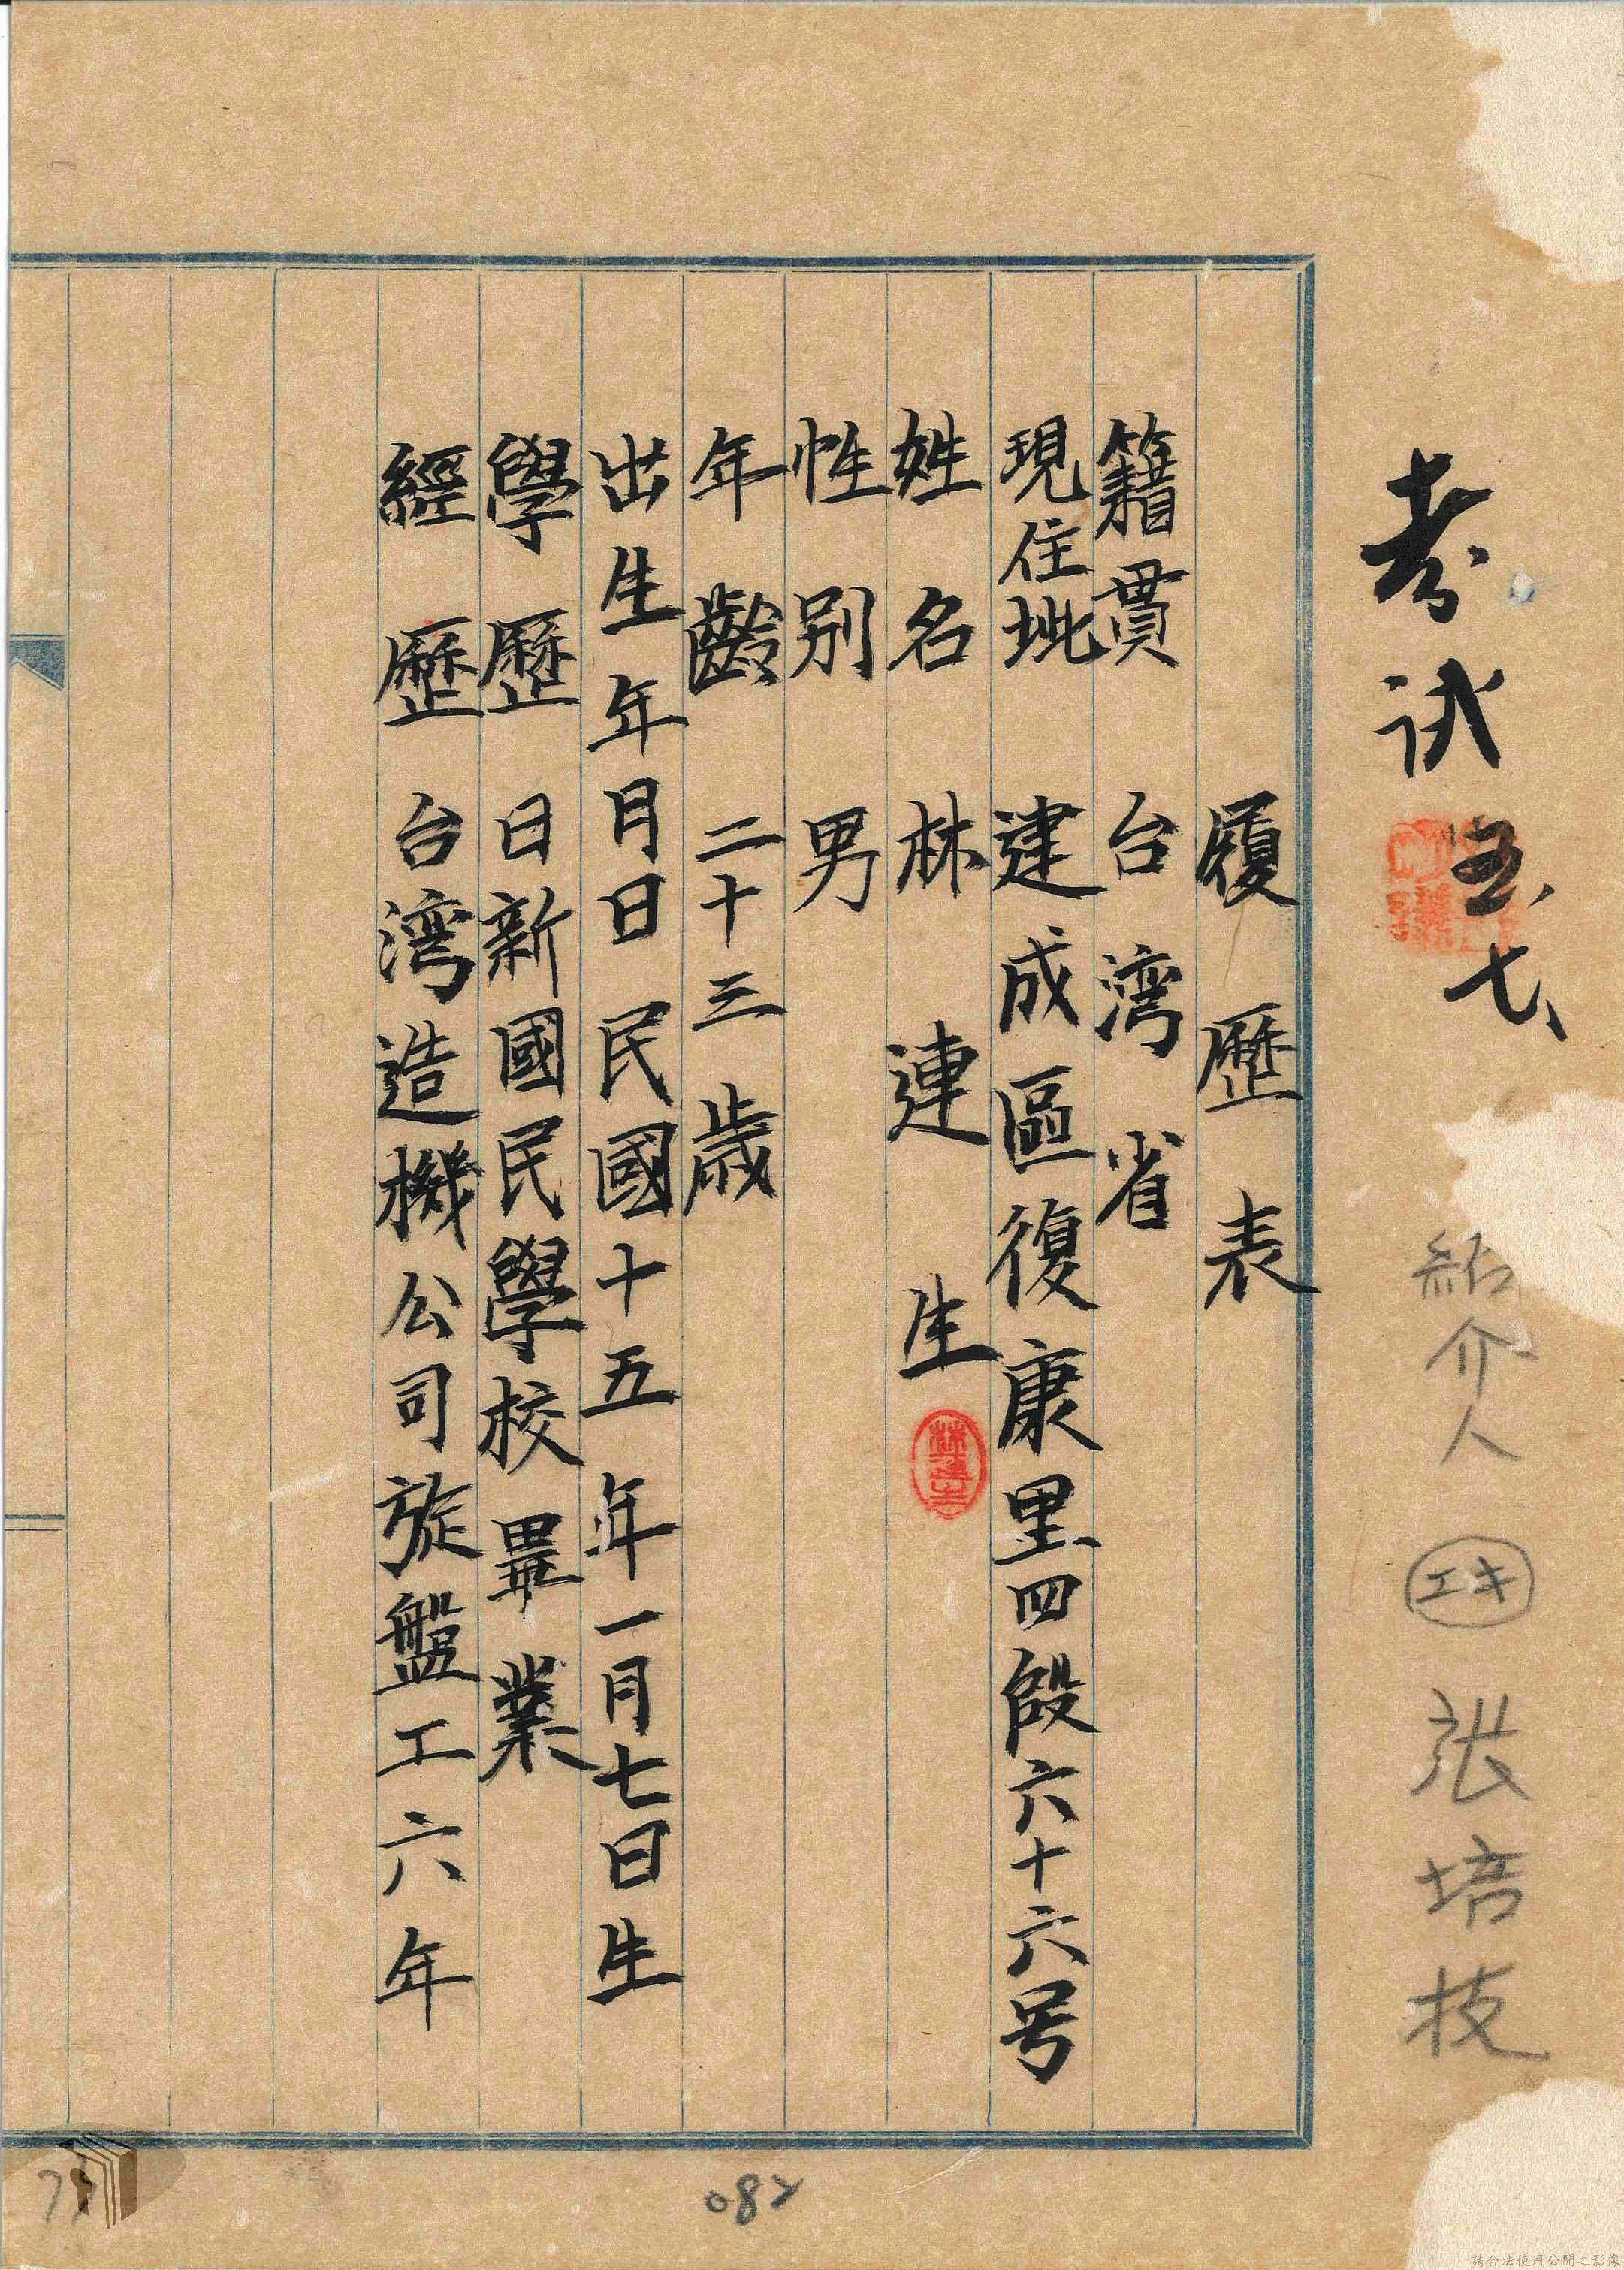 考試
七、
紹介人 エキ 張培技
履歷表
籍貫 台湾省
現住地 建成區復康里四段六十六号
姓名 林連生
性別 男
年齡 二十三歲
出生年月日 民國十五年一月七日生
學歷 日新國民學校畢業
經歷 台湾造機公司旋盤工六年
082
請合法使用公開之影像